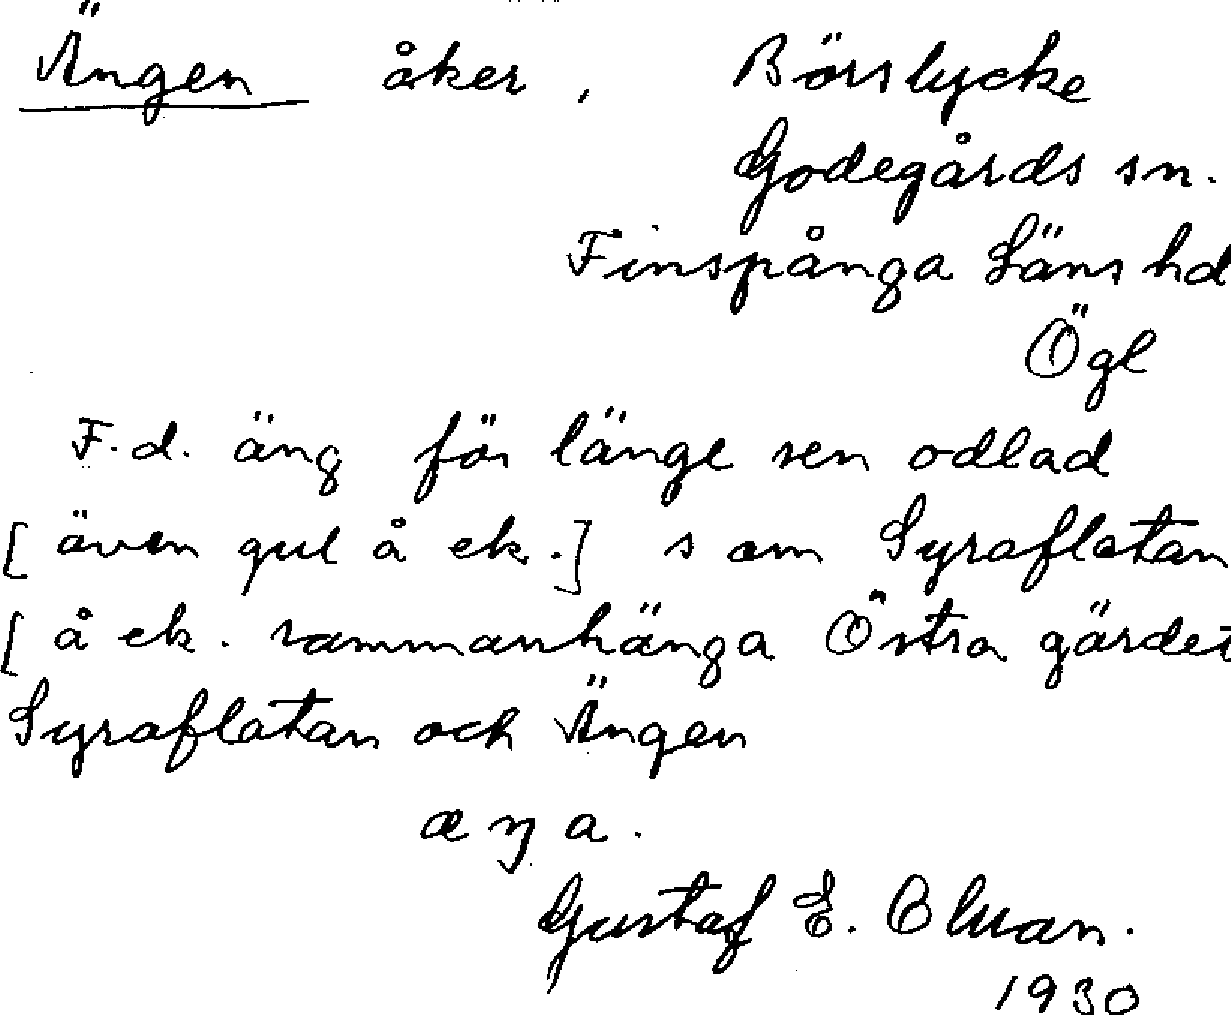 Ängen åker, Börslycke
Godegårds sn.
Finspånga Läns hd
Ögl
F.d. äng för länge sen odlad
[ även gul å ek.] som Syraflatan
[ å ek. sammanhänga Östra gärdet
Syraflatan och Ängen
æŋa.
Gustaf E. Olsson.
1930